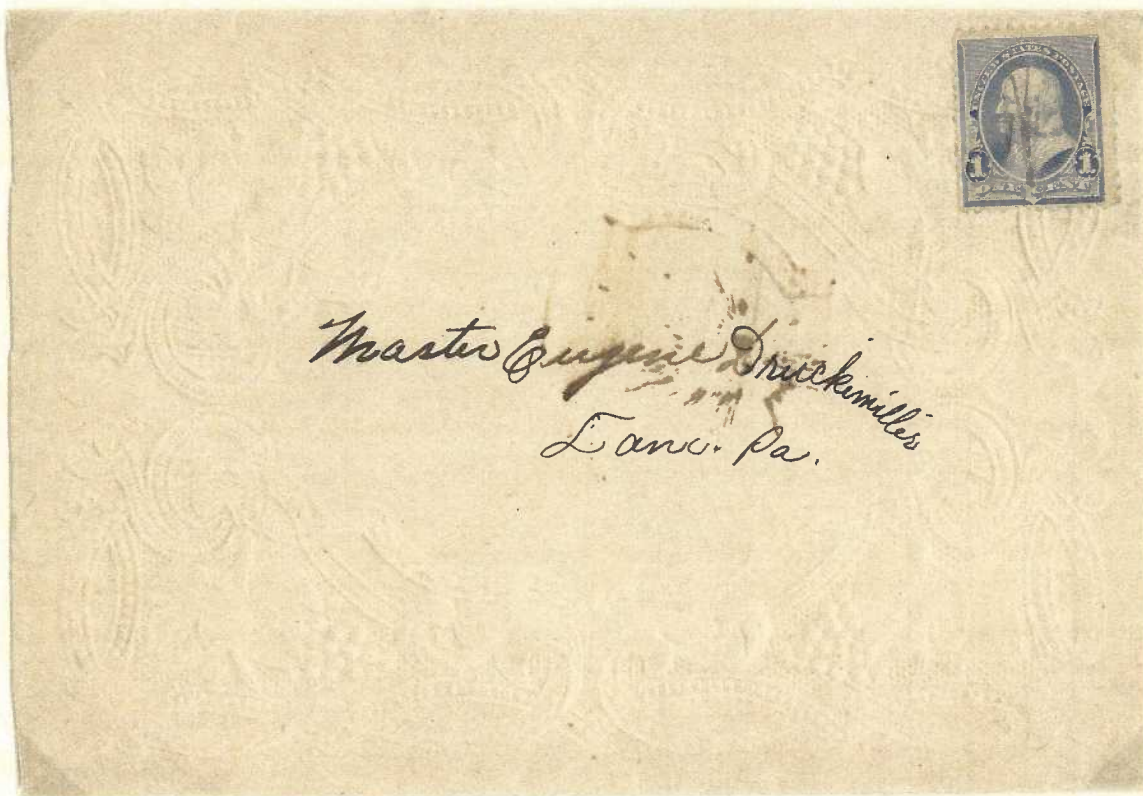 UNITED STATES POSTAGE
1 1
ONE CENT
Master Eugene Druckemiller
Lanc. Pa.